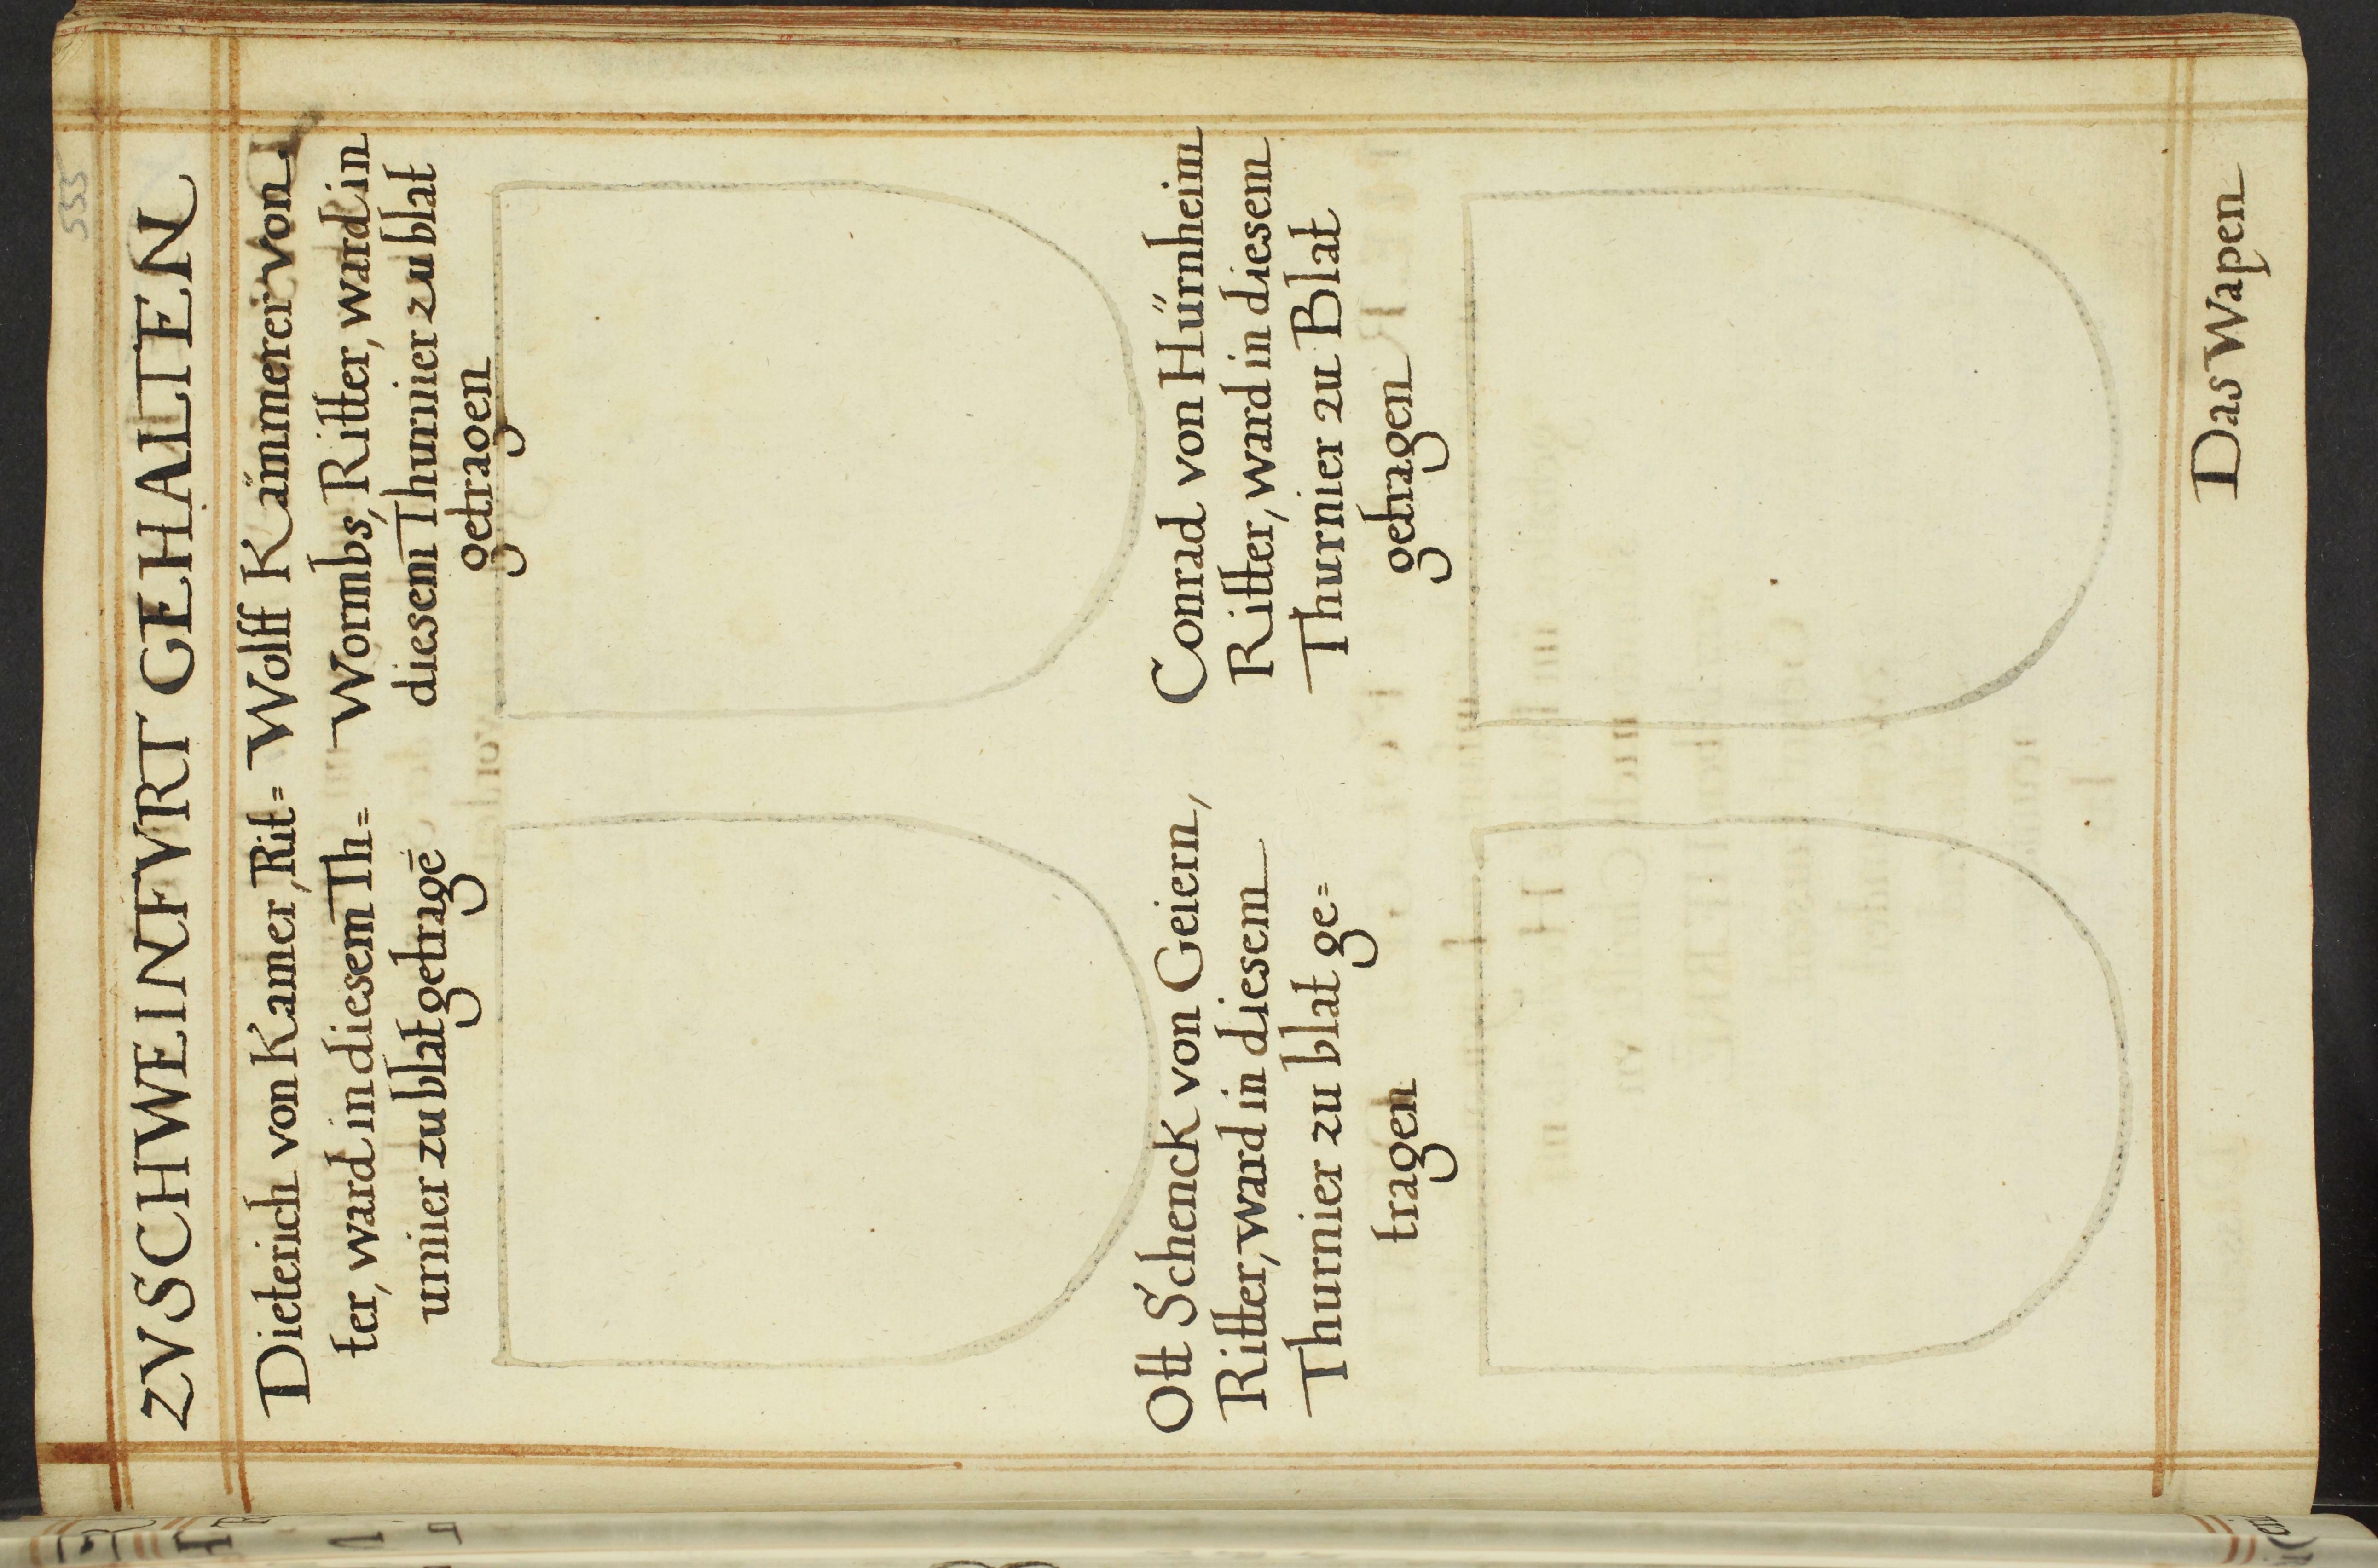 555
ZVSCHWEINFVRT GEHALTEN
Dieterich von Kamer, Rit=
ter, ward in diesem Th=
urnier zu blat getragē
Wolff Kämmerer von
Wormbs, Ritter, ward in
diesem Thurnier zu blat
getragen
Ott Schenck von Geiern,
Ritter, ward in diesem
Thurnier zu blat ge=
tragen
Conrad von Hürnheim
Ritter, ward in diesem
Thurnier zu Blat
getragen
Das Wapen